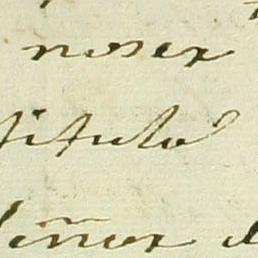 noser
titulo
Señor d